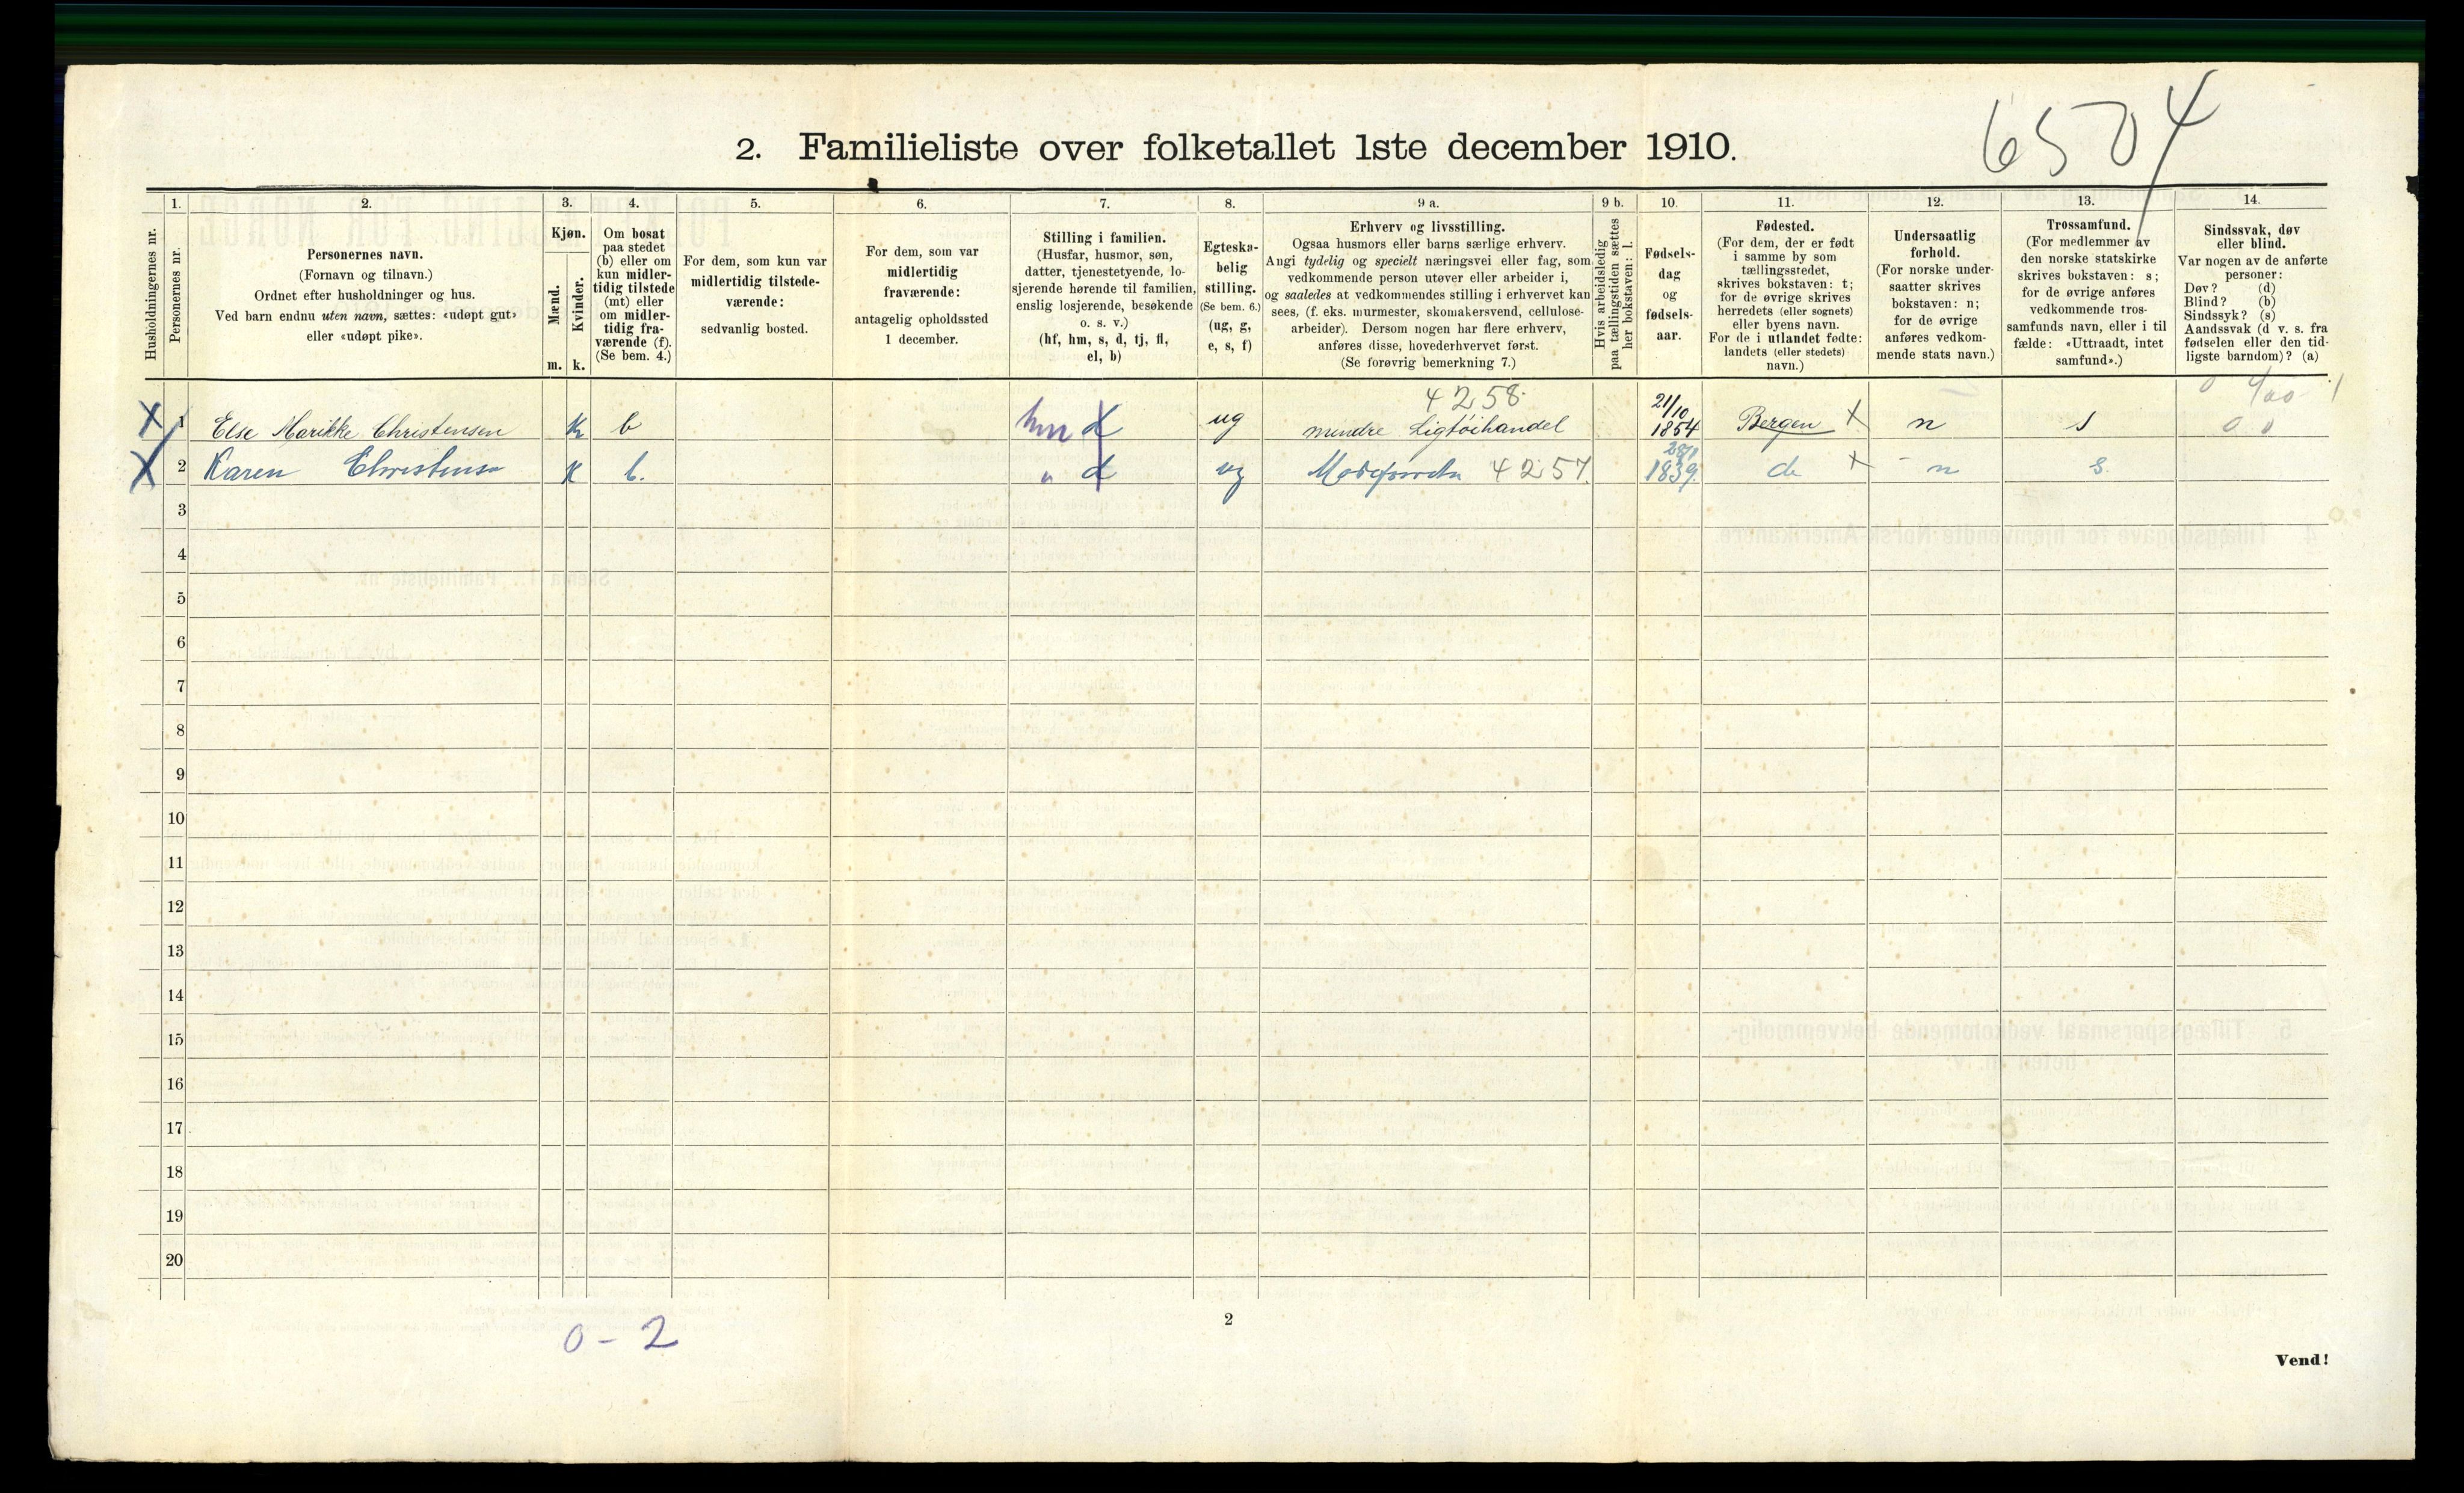 6504
2. Familieliste over folketallet 1ste december 1910.
1. 2. 3. 4. 5. 6. 7. 8. 9 a. 9 b. 10. 11. 12. 13. 14.
Husholdningernes nr.
Personernes nr.
Personernes navn.
(Fornavn og tilnavn.)
Ordnet efter husholdninger og hus.
Ved barn endnu uten navn, sættes: «udøpt gut»
eller «udøpt pike».
Kjøn.
Mænd.
Kvinder.
m. k.
Om bosat
paa stedet
(b) eller om
kun midler-
tidig tilstede
(mt) eller
om midler-
tidig fra-
værende (f).
(Se bem. 4.)
For dem, som kun var
midlertidig tilstede-
værende:
sedvanlig bosted.
For dem, som var
midlertidig
fraværende:
antagelig opholdssted
1 december.
Stilling i familien.
(Husfar, husmor, søn,
datter, tjenestetyende, lo-
sjerende hørende til familien,
enslig losjerende, besøkende
o. s. v.)
(hf, hm, s, d, tj, fl,
el, b)
Egteska-
belig
stilling.
(Se bem. 6.)
(ug, g,
e, s, f)
Erhverv og livsstilling.
Ogsaa husmors eller barns særlige erhverv.
Angi tydelig og specielt næringsvei eller fag, som
vedkommende person utøver eller arbeider i,
og saaledes at vedkommendes stilling i erhvervet kan
sees, (f. eks. murmester, skomakersvend, cellulose-
arbeider). Dersom nogen har flere erhverv,
anføres disse, hovederhvervet først.
(Se forøvrig bemerkning 7.)
Hvis arbeidsledig
paa tællingstiden sættes
her bokstaven: l.
Fødsels-
dag
og
fødsels-
aar.
Fødested.
(For dem, der er født
i samme by som
tællingsstedet,
skrives bokstaven: t;
for de øvrige skrives
herredets (eller sognets)
eller byens navn.
For de i utlandet fødte:
landets (eller stedets)
navn.)
Undersaatlig
forhold.
(For norske under-
saatter skrives
bokstaven: n;
for de øvrige
anføres vedkom-
mende stats navn.)
Trossamfund.
(For medlemmer av
den norske statskirke
skrives bokstaven: s;
for de øvrige anføres
vedkommende tros-
samfunds navn, eller i til
fælde: «Uttraadt, intet
samfund».)
Sindssvak, døv
eller blind.
Var nogen av de anførte
personer:
Døv? (d)
Blind? (b)
Sindssyk? (s)
Aandssvak (d v. s. fra
fødselen eller den tid-
ligste barndom)? (a)
4258
X 1 Else Marikke Christensen k b hm d ug mindre Ligtøihandel 21/10 1854 Bergen X n s 0 0
X 2 Karen Christensen k b. " d ug 4257 1839. do X n s.
3
4
5
6
7
8
9
10
11
12
13
14
15
16
17
18
19
20
0 - 2
2
Vend!